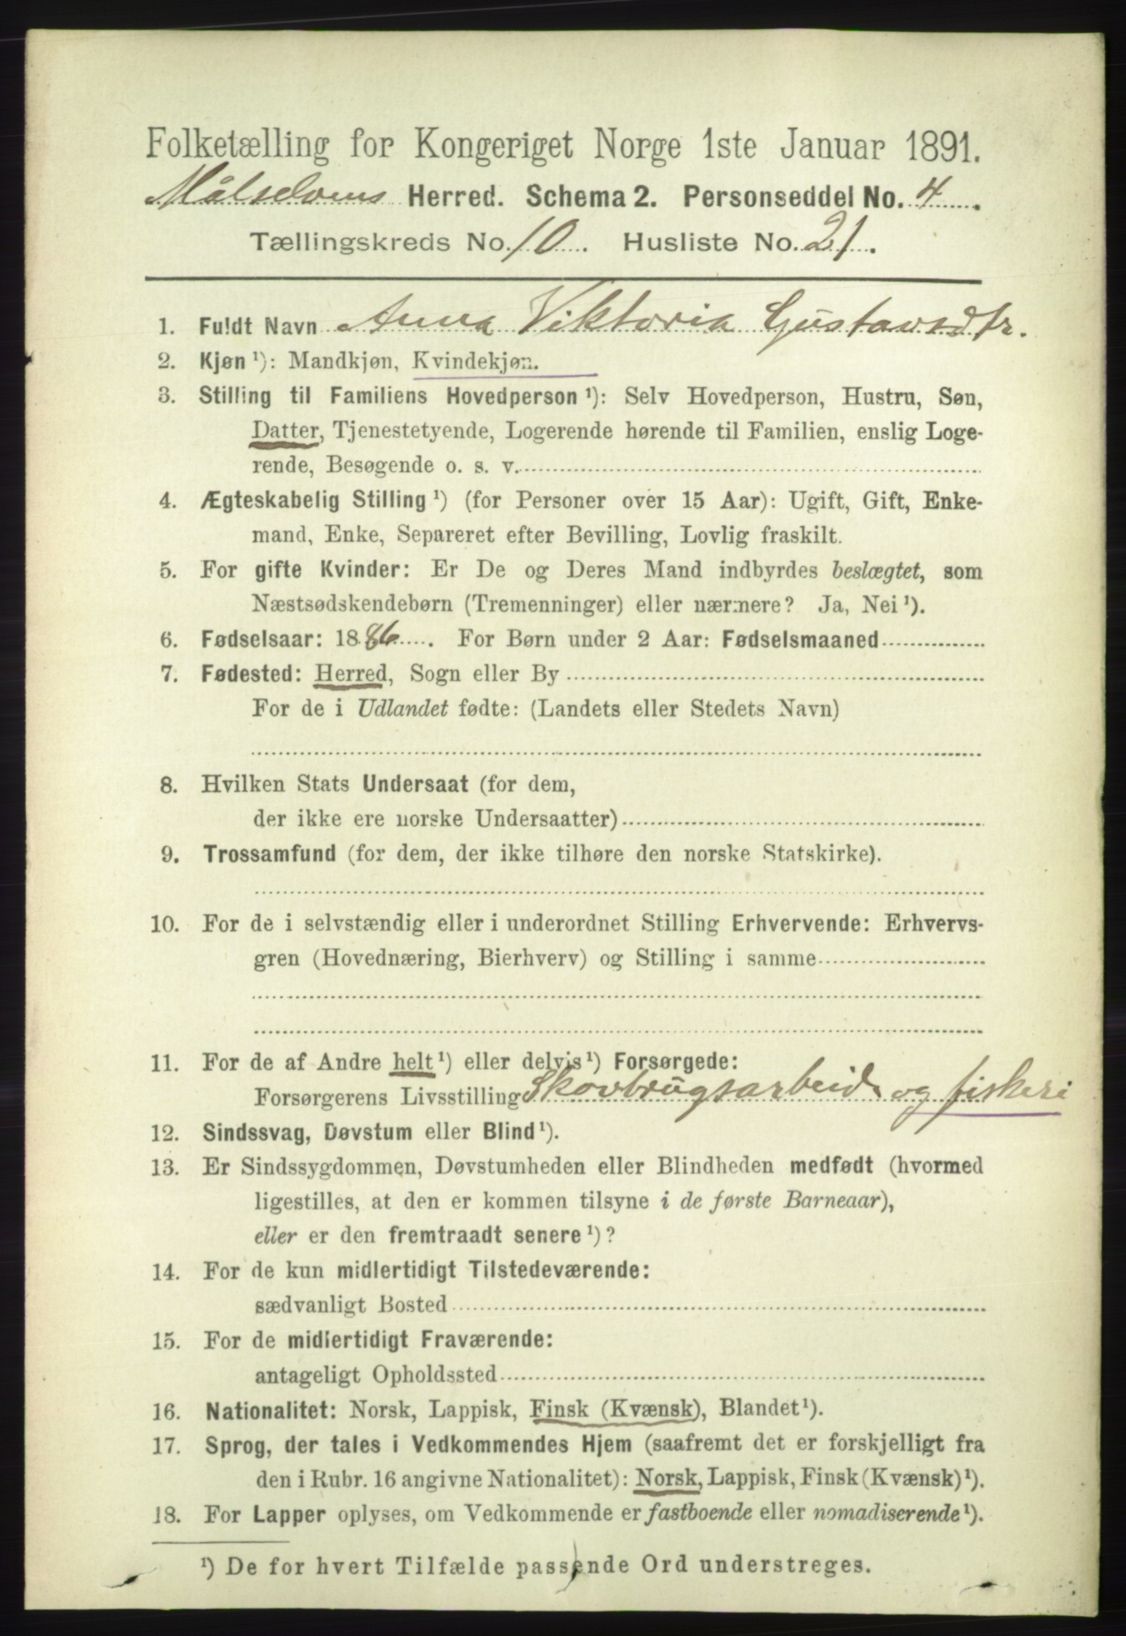 Folketælling for Kongeriget Norge 1ste Januar 1891.
Målselvens Herred. Schema 2. Personseddel No. 4.
Tællingskreds No. 10. Husliste No. 21.
1. Fuldt Navn Anna Viktoria Gustavsdtr.
2. Kjøn ¹): Mandkjøn, Kvindekjøn.
3. Stilling til Familiens Hovedperson ¹): Selv Hovedperson, Hustru, Søn,
Datter, Tjenestetyende, Logerende hørende til Familien, enslig Loge-
rende, Besøgende o. s. v.
4. Ægteskabelig Stilling ¹) (for Personer over 15 Aar): Ugift, Gift, Enke-
mand, Enke, Separeret efter Bevilling, Lovlig fraskilt.
5. For gifte Kvinder: Er De og Deres Mand indbyrdes beslægtet, som
Næstsødskendebørn (Tremenninger) eller nærmere? Ja, Nei ¹).
6. Fødselsaar: 1886. For Børn under 2 Aar: Fødselsmaaned
7. Fødested: Herred, Sogn eller By
For de i Udlandet fødte: (Landets eller Stedets Navn)
8. Hvilken Stats Undersaat (for dem,
der ikke ere norske Undersaatter)
9. Trossamfund (for dem, der ikke tilhøre den norske Statskirke).
10. For de i selvstændig eller i underordnet Stilling Erhvervende: Erhvervs-
gren (Hovednæring, Bierhverv) og Stilling i samme
11. For de af Andre helt ¹) eller delvis ¹) Forsørgede:
Forsørgerens Livsstilling Skovbrugsarbeide og fiskeri
12. Sindssvag, Døvstum eller Blind ¹).
13. Er Sindssygdommen, Døvstumheden eller Blindheden medfødt (hvormed
ligestilles, at den er kommen tilsyne i de første Barneaar),
eller er den fremtraadt senere ¹)?
14. For de kun midlertidigt Tilstedeværende:
sædvanligt Bosted
15. For de midlertidigt Fraværende:
antageligt Opholdssted
16. Nationalitet: Norsk, Lappisk, Finsk (Kvænsk), Blandet ¹).
17. Sprog, der tales i Vedkommendes Hjem (saafremt det er forskjelligt fra
den i Rubr. 16 angivne Nationalitet): Norsk, Lappisk, Finsk (Kvænsk) ¹).
18. For Lapper oplyses, om Vedkommende er fastboende eller nomadiserende ¹).
¹) De for hvert Tilfælde passende Ord understreges.